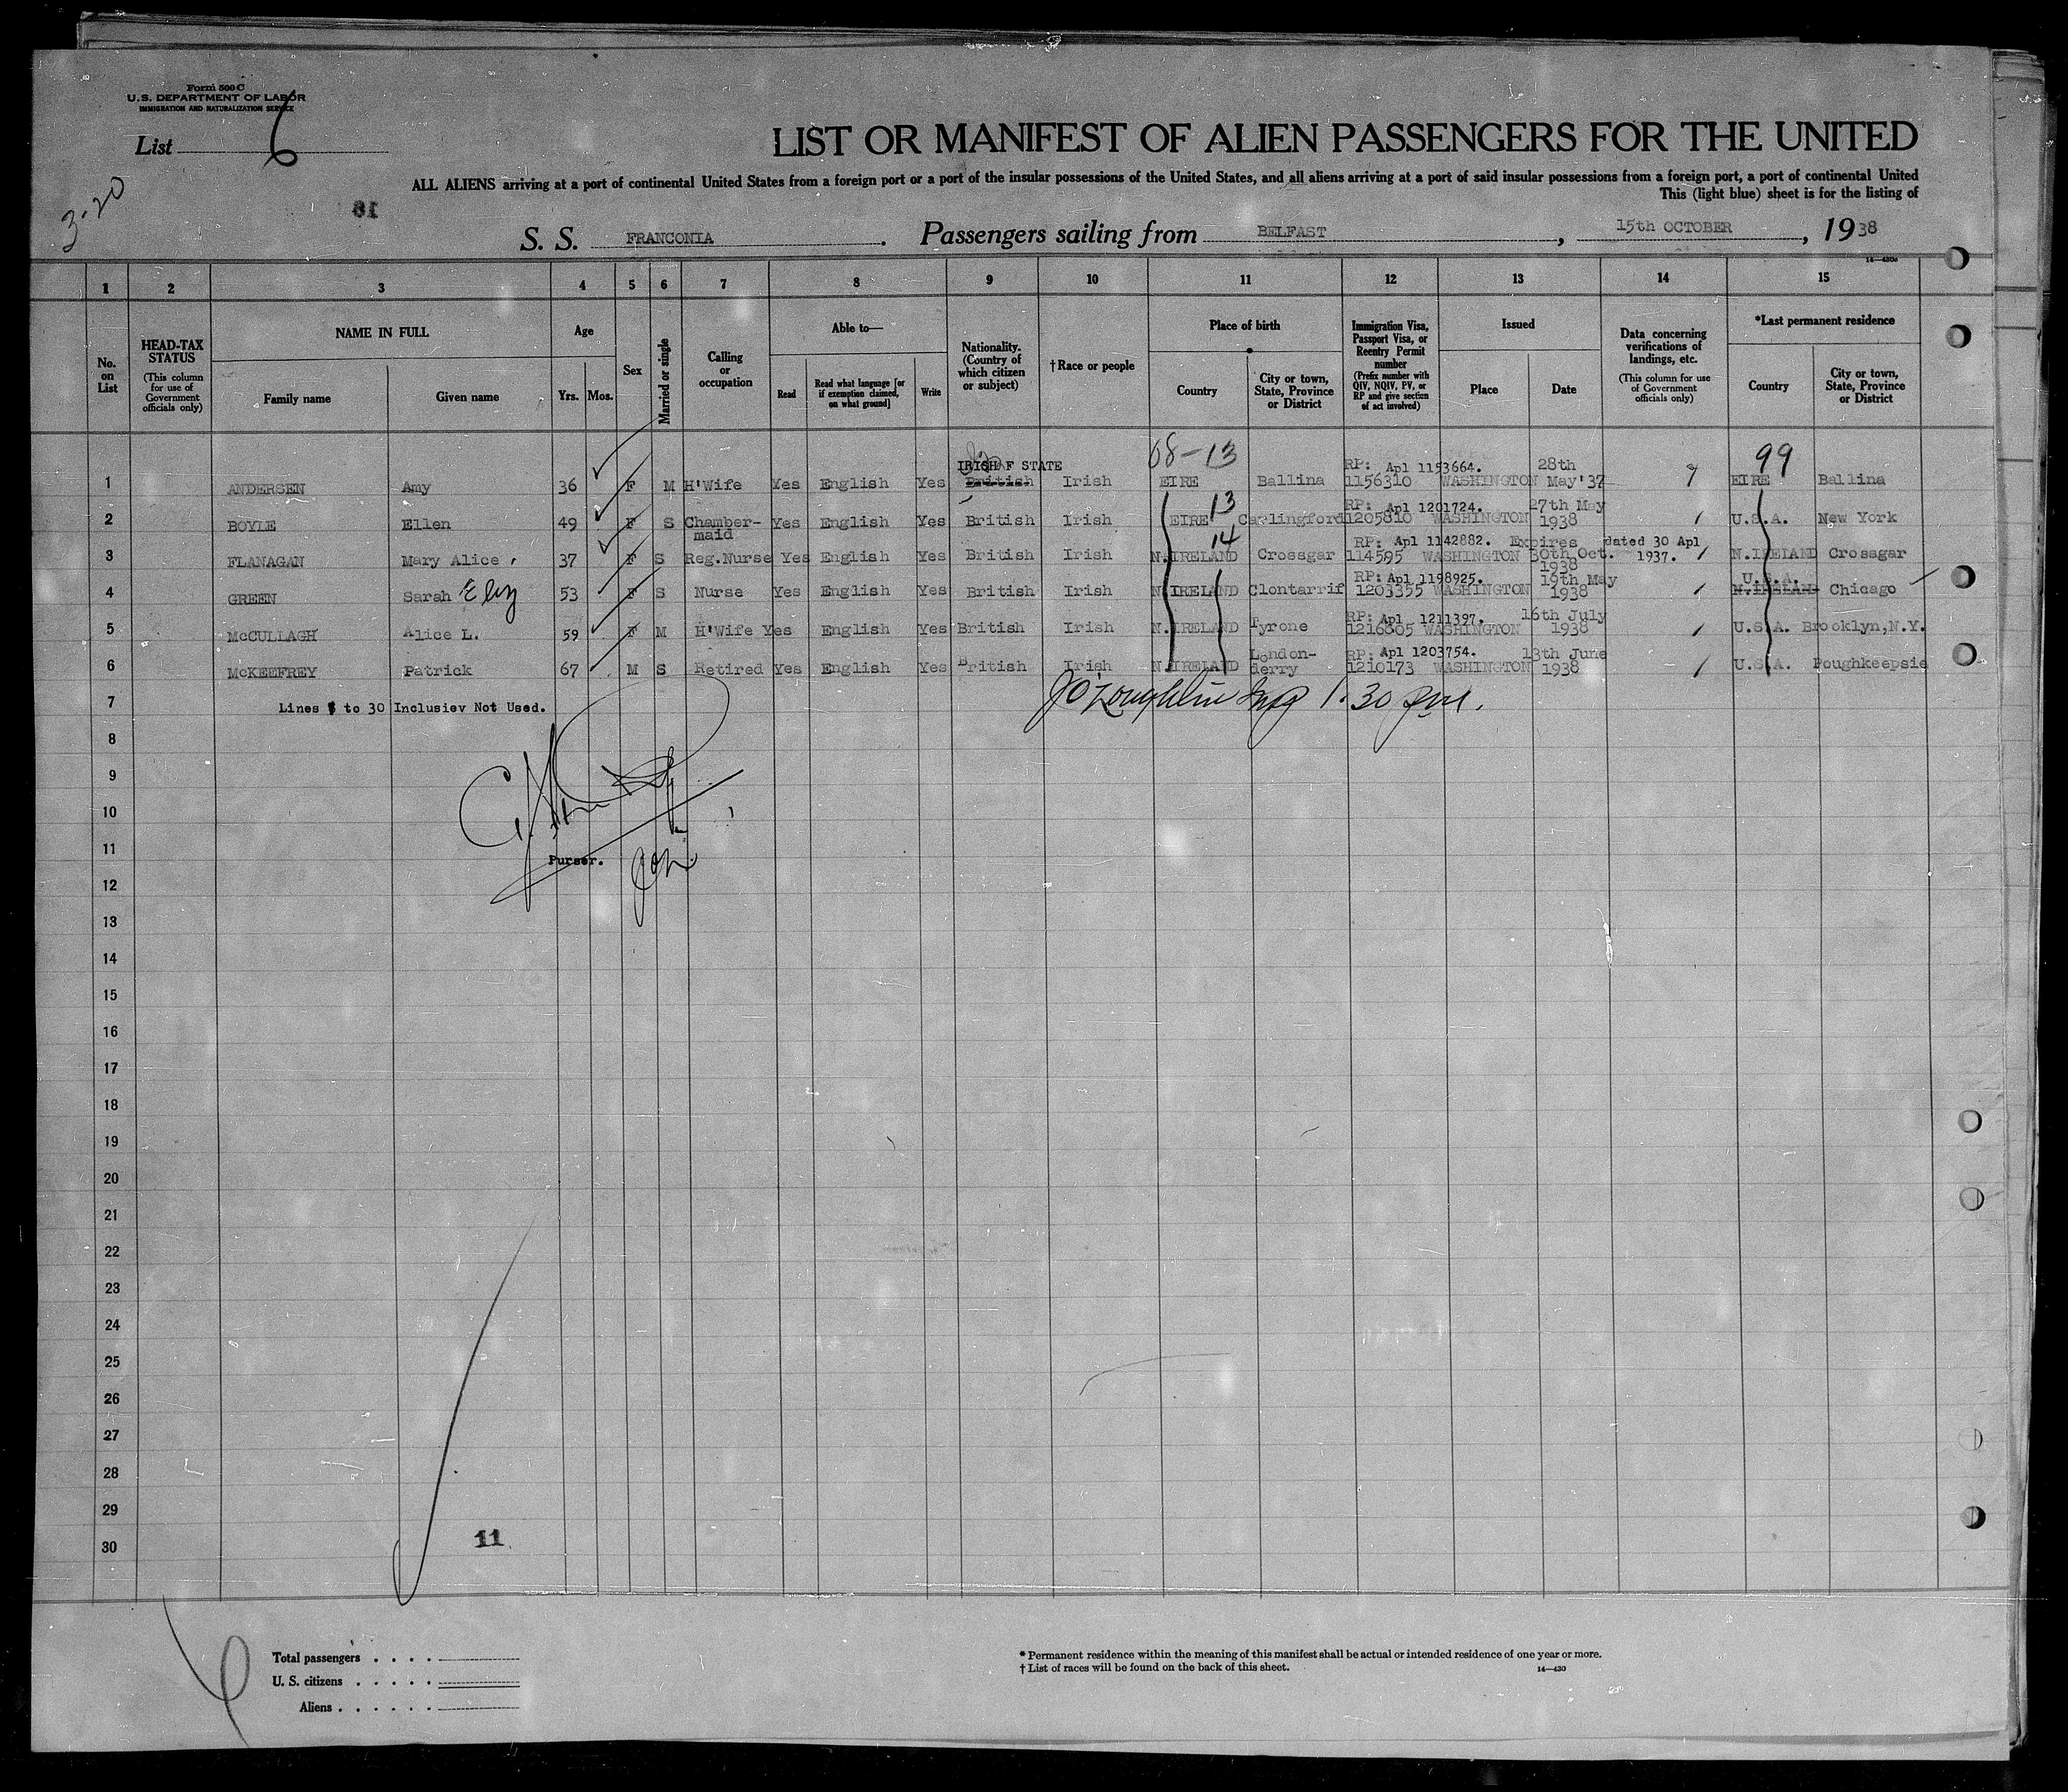 Form 500 C
U.S. DEPARTMENT OF LABOR
IMMIGRATION AND NATURALIZATION SERVICE
List 6
3-20
LIST OR MANIFEST OF ALIEN PASSENGERS FOR THE UNITED
ALL ALIENS arriving at a port of continental United States from a foreign port or a port of the insular possessions of the United States, and all aliens arriving at a port of said insular possessions from a foreign port, a port of continental United
This (light blue) sheet is for the listing of
S. S. FRANCONIA. Passengers sailing from BELFAST, 15th OCTOBER, 1938
1 2 3 4 5 6 7 8 9 10 11 12 13 14 15
No. on List
HEAD-TAX STATUS (This column for use of Government officials only)
NAME IN FULL
Family name Given name
Age
Yrs. Mos.
Sex
Married or single
Calling or occupation
Able to—
Read Read what language [or if exemption claimed, on what ground] Write
Nationality. (Country of which citizen or subject)
†Race or people
Place of birth
Country City or town, State, Province or District
Immigration Visa, Passport Visa, or Reentry Permit number (Prefix number with QIV, NQIV, PV, or RP and give section of act involved)
Issued
Place Date
Data concerning verifications of landings, etc. (This column for use of Government officials only)
*Last permanent residence
Country City or town, State, Province or District
68-13 99
IRISH F STATE RP: Apl 1153664. 28th
1 ANDERSEN Amy 36 F M H'Wife Yes English Yes British Irish EIRE Ballina 1156310 WASHINGTON May'37 EIRE Ballina
13 RP: Apl 1201724. 27th May
2 BOYLE Ellen 49 F S Chamber-maid Yes English Yes British Irish EIRE Carlingford 1205810 WASHINGTON 1938 U.S.A. New York
14 RP: Apl 1142882. Expires dated 30 Apl
3 FLANAGAN Mary Alice 37 F S Reg.Nurse Yes English Yes British Irish N.IRELAND Crossgar 114595 WASHINGTON 30th Oct. 1938 1937. N.IRELAND Crossgar
RP: Apl 1198925. 19th May U.S.A.
4 GREEN Sarah Eliz 53 F S Nurse Yes English Yes British Irish N.IRELAND Clontarrif 1203355 WASHINGTON 1938 N.IRELAND Chicago
RP: Apl 1211397. 16th July
5 McCULLAGH Alice L. 59 F M H'Wife Yes English Yes British Irish N.IRELAND Tyrone 1216805 WASHINGTON 1938 U.S.A. Brooklyn,N.Y.
RP: Apl 1203754. 13th June
6 McKEEFREY Patrick 67 M S Retired Yes English Yes British Irish N.IRELAND London-derry 1210173 WASHINGTON 1938 U.S.A. Poughkeepsie
7 Lines to 30 Inclusiev Not Used. JO'Loughlin Insp 1.30 pm.
8
9
10
11
Purser.
12
13
14
15
16
17
18
19
20
21
22
23
24
25
26
27
28
29
30
11
Total passengers
U. S. citizens
Aliens
* Permanent residence within the meaning of this manifest shall be actual or intended residence of one year or more.
† List of races will be found on the back of this sheet. 14—430